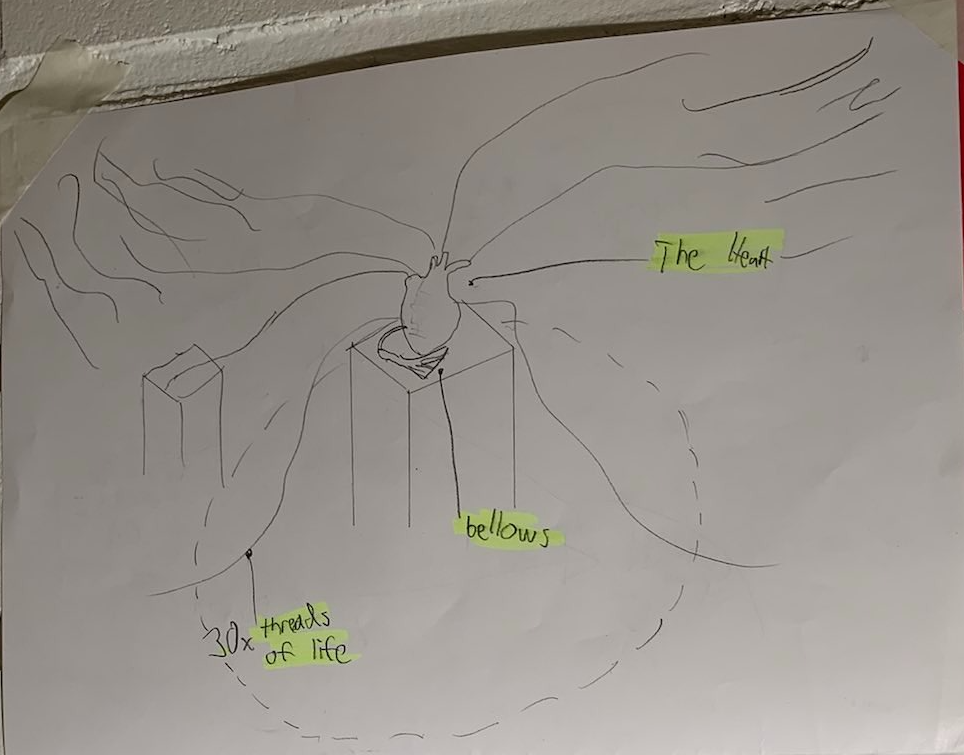 The Heart
bellows
30x threads
of life